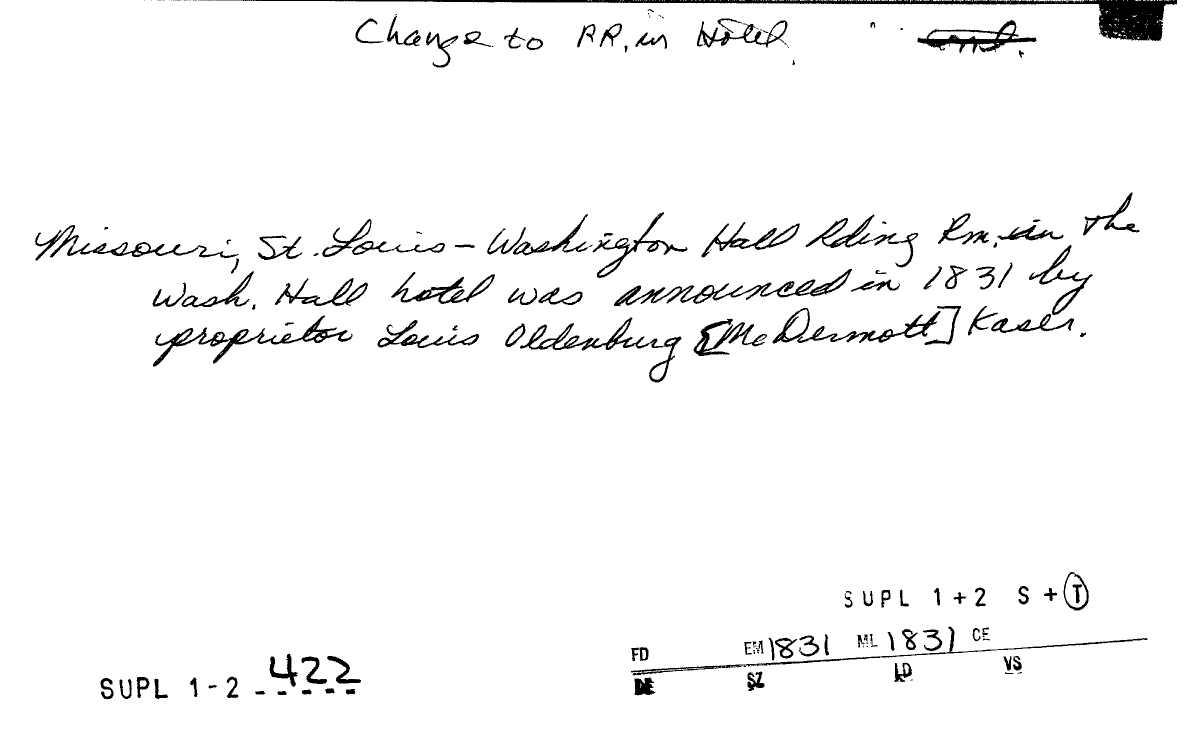 Change to RR. in Hotel.
Missouri, St. Louis – Washington Hall Rding Rm. in the
Wash. Hall hotel was announced in 1831 by
proprietor Louis Oldenburg [McDermott] Kaser.
SUPL 1+2 S + T
FD EM 1831 ML 1831 CE
DE SZ LD VS
SUPL 1-2 - 422